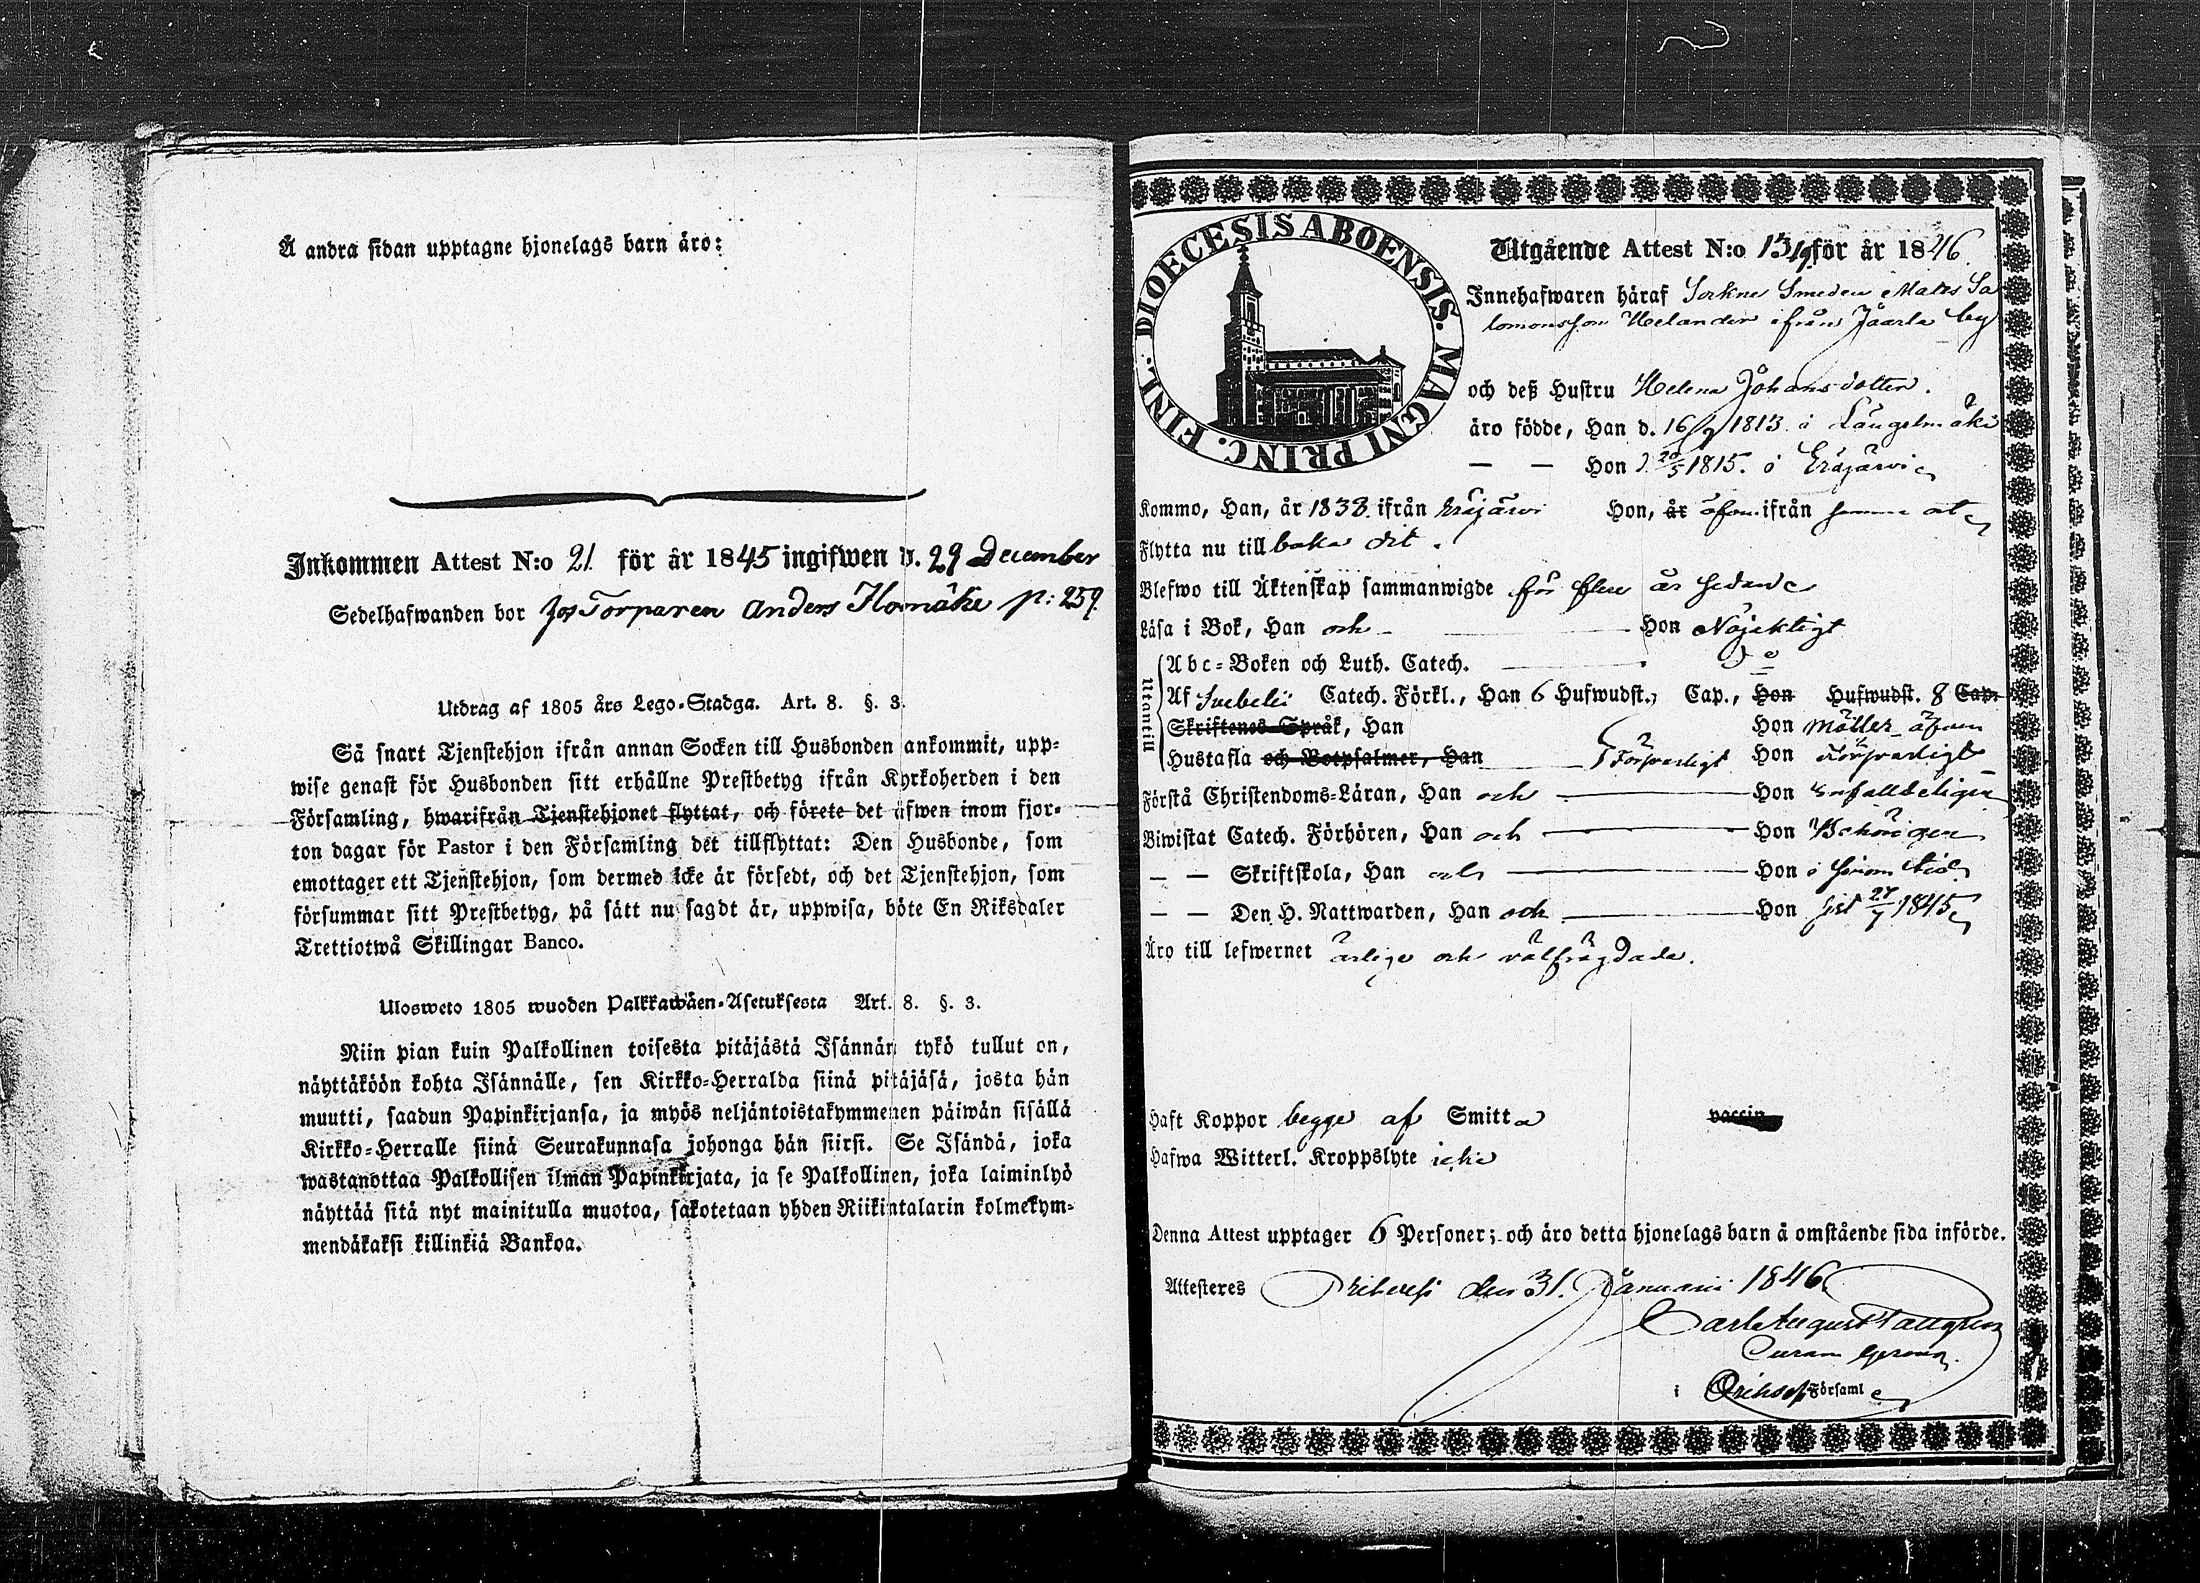 Å andra sidan upptagne hjonelags barn äro:
Inkommen Attest N:o 21 för år 1845 ingifwen d. 29 December
Sedelhafwanden bor hos Torparen Anders p: 259.
Utdrag af 1805 års Lego-Stadga. Art. 8. §. 3.
Så snart Tjenstehjon ifrån annan Socken till Husbonden ankommit, upp-
wise genast för Husbonden sitt erhållne Prestbetyg ifrån Kyrkoherden i den
Församling, hwarifrån Tjenstehjonet flyttat, och förete det äfwen inom fjor-
ton dagar för Pastor i den Församling det tillflyttat: Den Husbonde, som
emottager ett Tjenstehjon, som dermed icke är försedt, och det Tjenstehjon, som
försummar sitt Prestbetyg, på sätt nu sagdt är, uppwisa, böte En Riksdaler
Trettiotwå Skillingar Banco.
Ulosweto 1805 wuoden Palkkawäen-Asetuksesta Art. 8. §. 3.
Niin pian kuin Palkollinen toisesta pitäjästä Isännän tykö tullut on,
näyttäköön kohta Isännälle, sen Kirkko-Herralda siinä pitäjäsä, josta hän
muutti, saadun Papinkirjansa, ja myös neljäntoistakymmenen päiwän sisällä
Kirkko-Herralle siinä Seurakunnasa johonga hän siirsi. Se Isändä, joka
wastanottaa Palkollisen ilman Papinkirjata, ja se Palkollinen, joka laiminlyö
näyttää sitä nyt mainitulla muotoa, sakotetaan yhden Riikintalarin kolmekym-
mendäkaksi killinkiä Bankoa.
DIOECESIS ABOENSIS. MAGNI PRINC. FINL.
Utgående Attest N:o 13 för år 1846.
Innehafwaren häraf Sockne Smeden Mats Sa
lomonsson Helander ifrån Jäärla by
och deß Hustru Helena Johansdotter.
äro födde, Han d. 16/9 1813. i Längelmäki
— — Hon d. 20/5 1815. i Eräjärwi
Kommo, Han, år 1838. ifrån Eräjärwi Hon, år äfven ifrån samma ort
Flytta nu tillbaka dit.
Blefwo till Äktenskap sammanwigde för flere år sedan
Läsa i Bok, Han och — Hon Nöjaktigt
Utantill
Abc-Boken och Luth. Catech. — d:o
Af Svebelii Catech. Förkl., Han 6 Hufwudst., Cap., Hon Hufwudst. 8 Cap.
Skriftenes Språk, Han Hon äfven
Hustafla och Botpsalmer, Han Försvarligt Hon Försvarligt
Förstå Christendoms-Läran, Han och — Hon Enfaldeligen
Biwistat Catech. Förhören, Han och — Hon Behörigen
— — Skriftskola, Han och — Hon i sinom tid
— — Den H. Nattwarden, Han och — Hon sist 27/7 1845
Äro till lefwernet ärlige och välfrägdade.
Haft Koppor begge af Smitta vaccin
Hafwa Witterl. Kroppslyte icke
Denna Attest upptager 6 Personer; och äro detta hjonelags barn å omstående sida införde.
Attesteres Orihvesi den 31. Januarii 1846.
Carl August Tallgren
Curam gerens.
i Orihvesi Församl